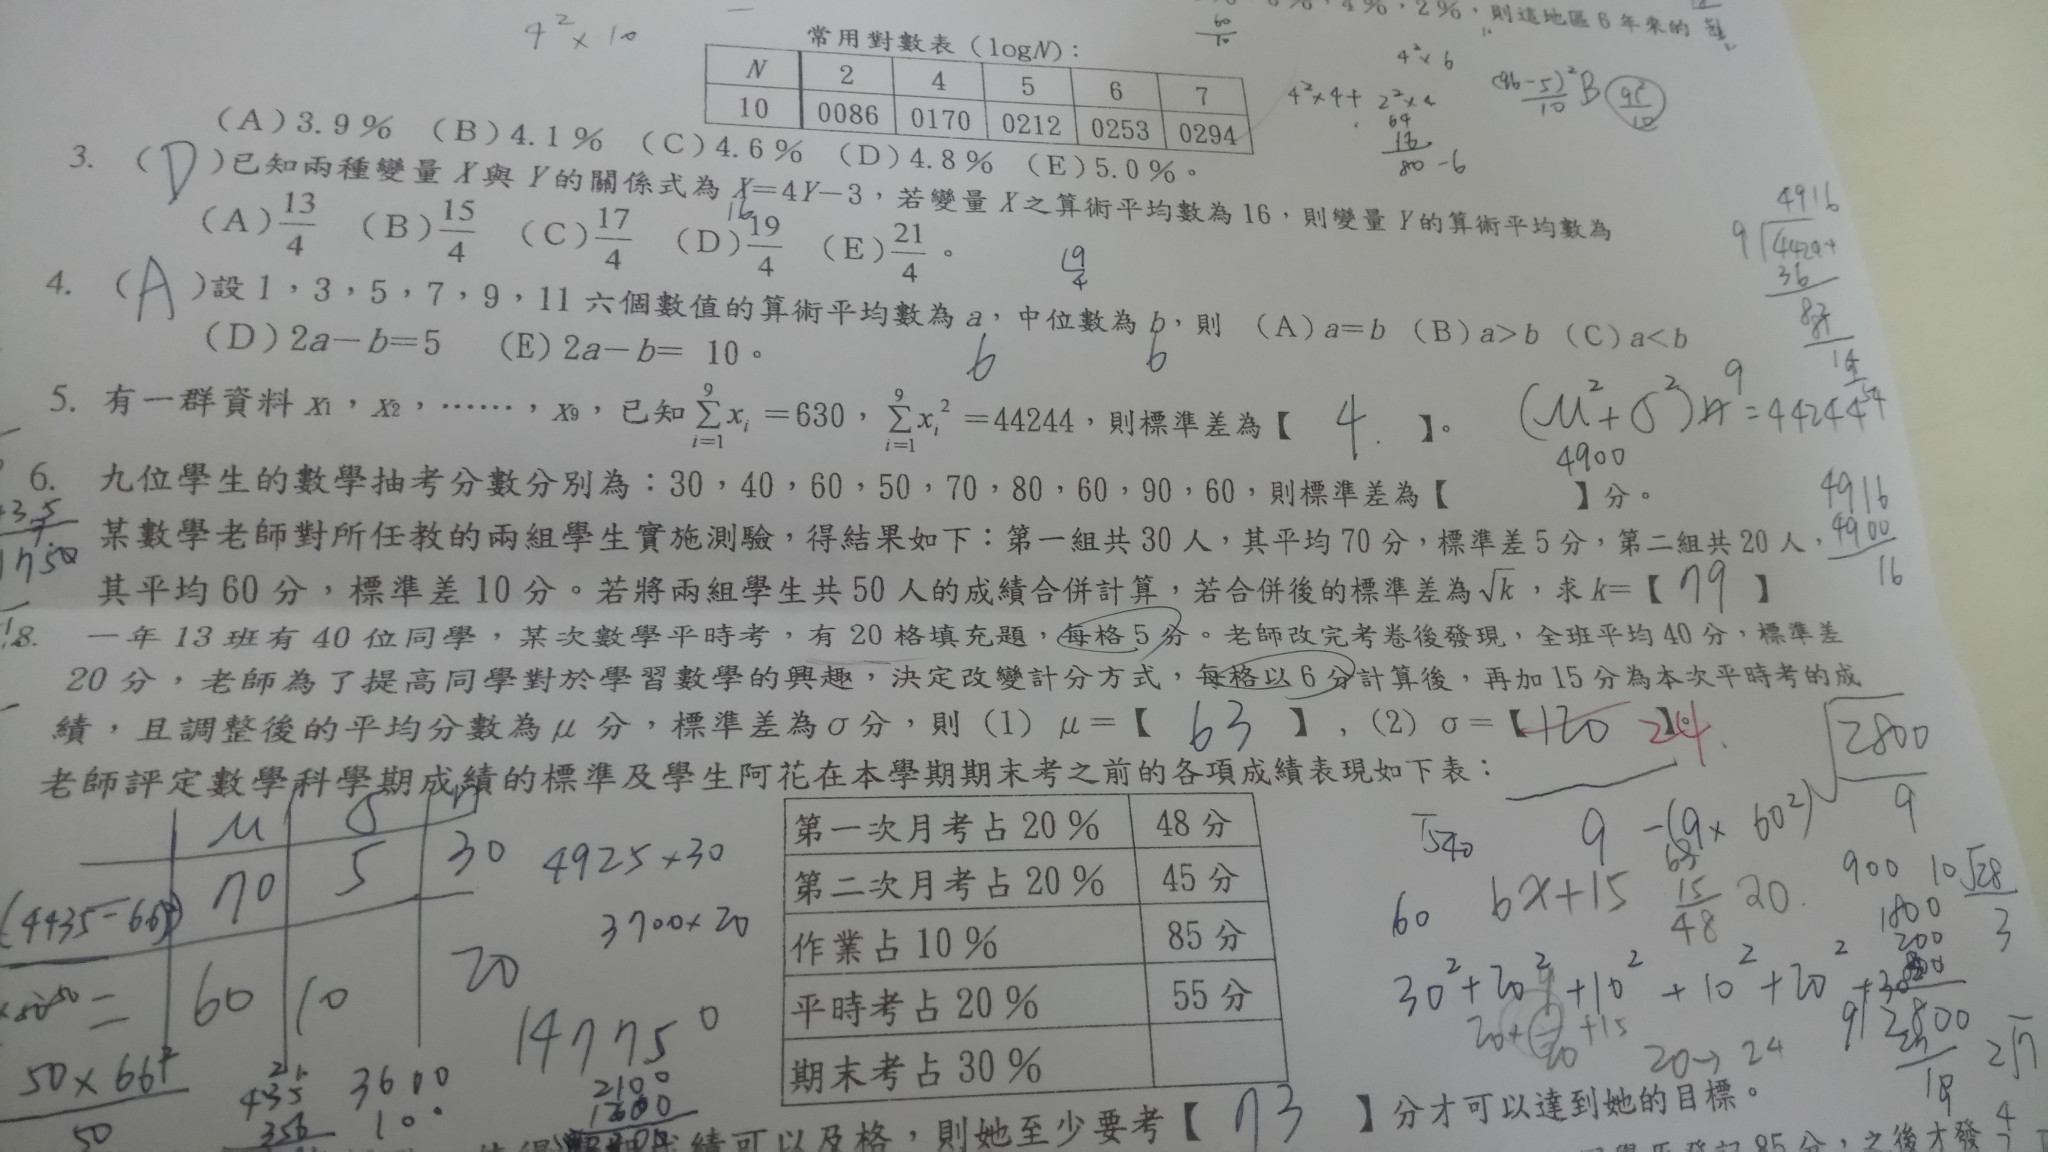 4%，2%，則這地區6年來的
4²×10
常用對數表（logN）：
N 2 4 5 6 7
10 0086 0170 0212 0253 0294
4²×6
4²×4+ 2²×4
64
16
80 -6
(A)3.9% (B)4.1% (C)4.6% (D)4.8% (E)5.0%。
3. (D)已知兩種變量X與Y的關係式為X=4Y-3，若變量X之算術平均數為16，則變量Y的算術平均數為
16
(A)13/4 (B)15/4 (C)17/4 (D)19/4 (E)21/4。
19/4
4. (A)設1，3，5，7，9，11六個數值的算術平均數為a，中位數為b，則 (A)a=b (B)a>b (C)a<b
(D)2a-b=5 (E)2a-b= 10。
6 6
5. 有一群資料x₁，x₂，……，x₉，已知∑xᵢ=630，∑xᵢ²=44244，則標準差為【 4. 】。
4900
6. 九位學生的數學抽考分數分別為：30，40，60，50，70，80，60，90，60，則標準差為【 】分。
4916
4900
16
某數學老師對所任教的兩組學生實施測驗，得結果如下：第一組共30人，其平均70分，標準差5分，第二組共20人，
其平均60分，標準差10分。若將兩組學生共50人的成績合併計算，若合併後的標準差為√k，求k=【 79 】
8. 一年13班有40位同學，某次數學平時考，有20格填充題，每格5分。老師改完考卷後發現，全班平均40分，標準差
20分，老師為了提高同學對於學習數學的興趣，決定改變計分方式，每格以6分計算後，再加15分為本次平時考的成
績，且調整後的平均分數為μ分，標準差為σ分，則 (1) μ=【 63 】，(2) σ=【 120 24 】。
老師評定數學科學期成績的標準及學生阿花在本學期期末考之前的各項成績表現如下表：
第一次月考占20% 48分
第二次月考占20% 45分
作業占10% 85分
平時考占20% 55分
期末考占30%
μ σ n
70 5 30
60 10 20
4925×30
3700×20
147750
50×66²
50
3600
100
√2800
9
540
9 -(9×60²)
60 6x+15 15/48 20.
30²+20²+10²+10²+20²+30²
20→24
績可以及格，則她至少要考【 73 】分才可以達到她的目標。
85分，之後才發